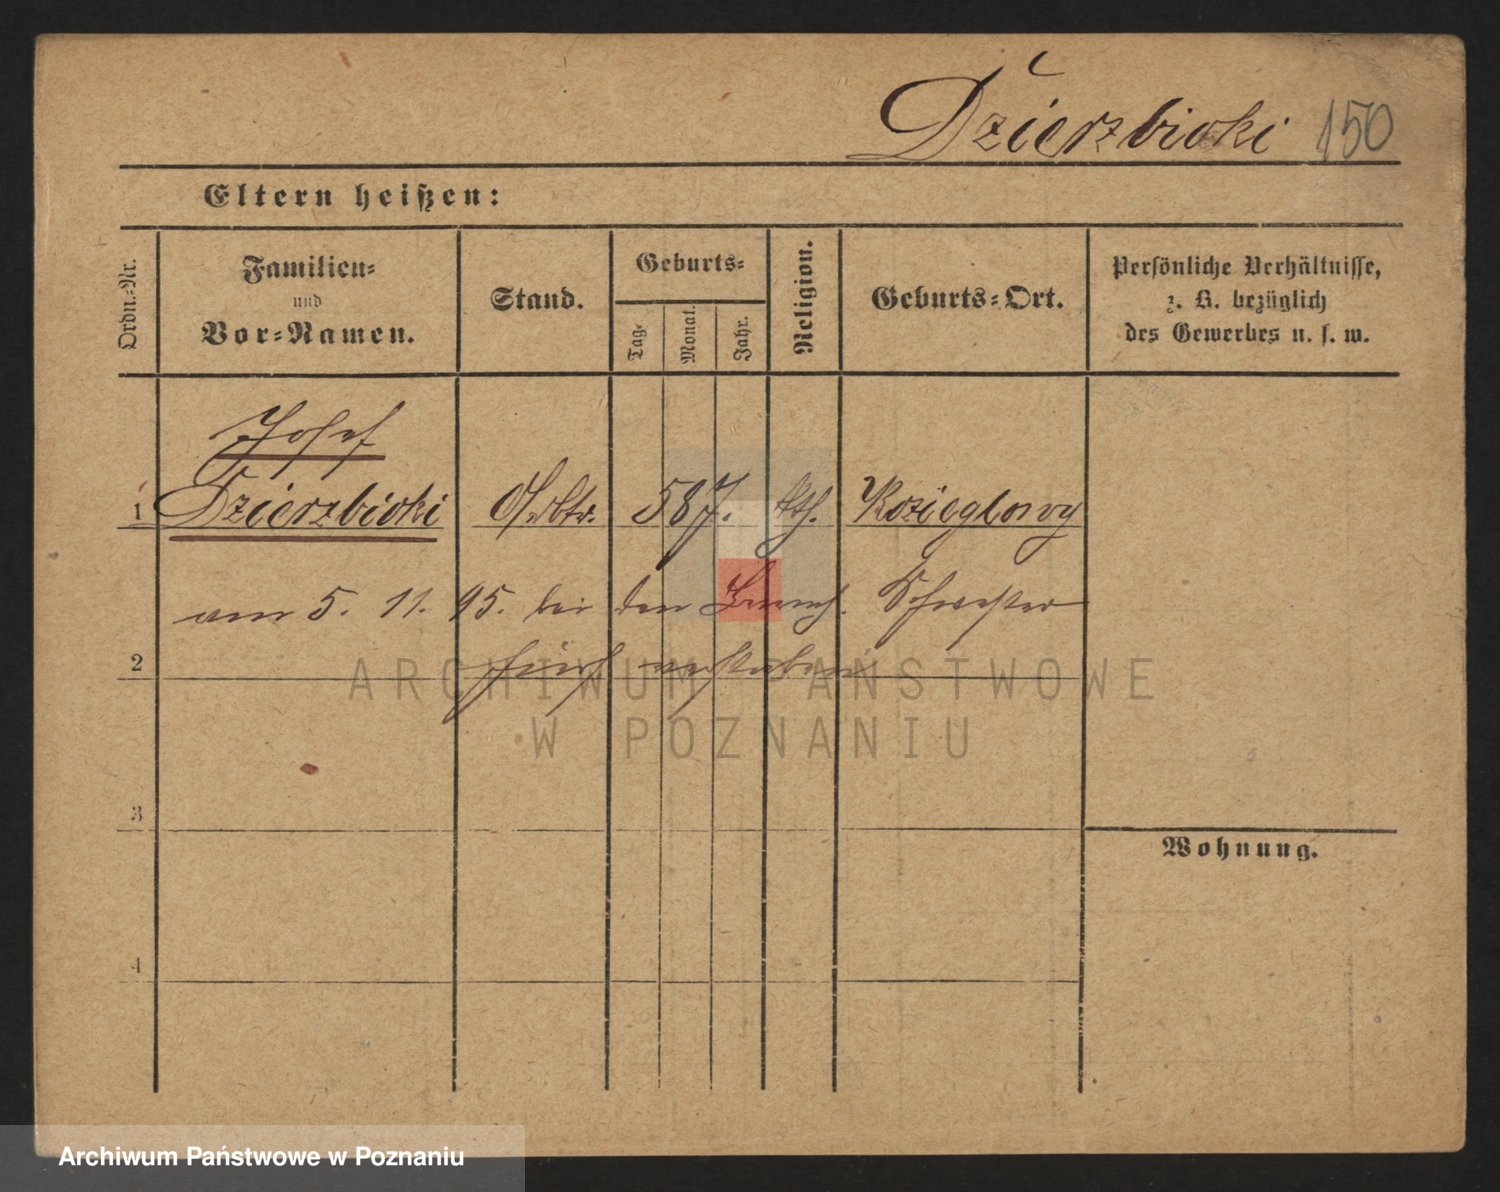 Dzierzbicki 150
Eltern heißen:
Ordn.-Nr.
Familien-
und
Vor-Namen.
Stand.
Geburts-
Tag-
Monat.
Jahr.
Religion.
Geburts-Ort.
Persönliche Verhältnisse,
z. B. bezüglich
des Gewerbes u. s. w.
Josef
1 Dzierzbicki Arbtr. 587. kth. Kozieglowy
am 5. 11. 95. bei den Barmh. Schwester
2 hier verstorben
ARCHIWUM PAŃSTWOWE
W POZNANIU
3
Wohnung.
4
Archiwum Państwowe w Poznaniu